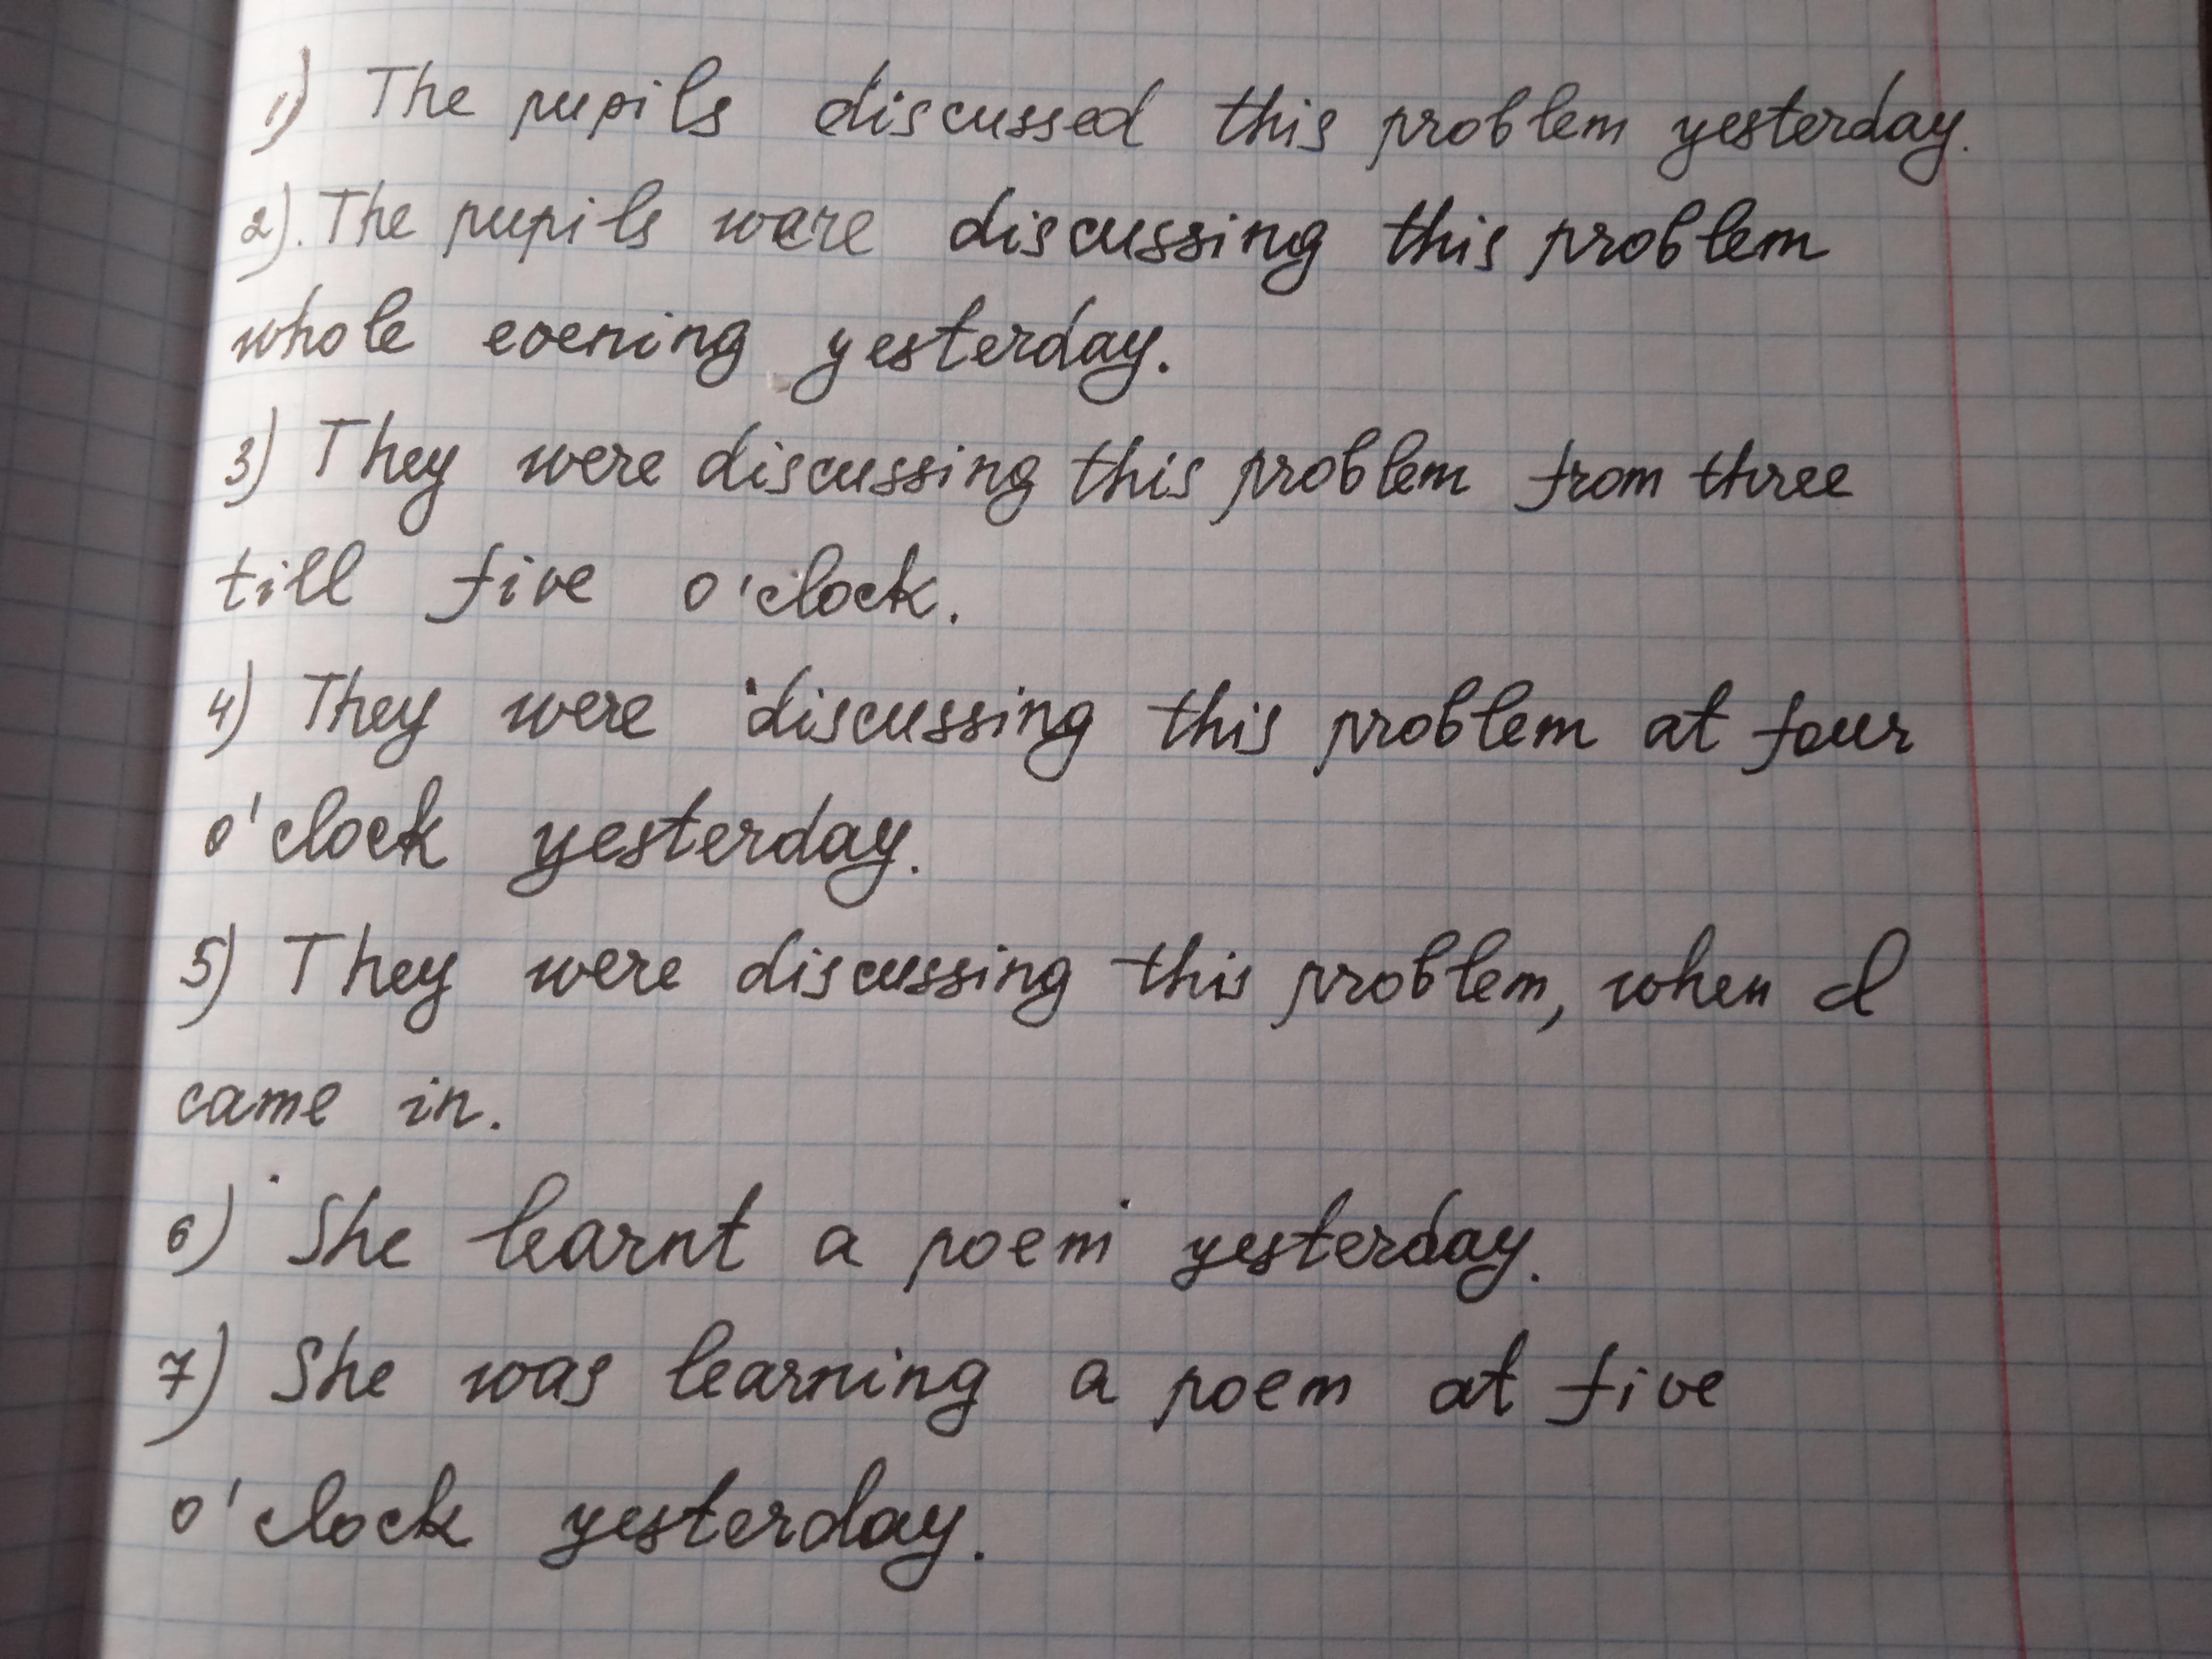 1) The pupils discussed this problem yesterday.
2). The pupils were discussing this problem
whole evening yesterday.
3) They were discussing this problem from three
till five o'clock.
4) They were discussing this problem at four
o'clock yesterday.
5) They were discussing this problem, when I
came in.
6) She learnt a poem yesterday.
7) She was learning a poem at five
o'clock yesterday.